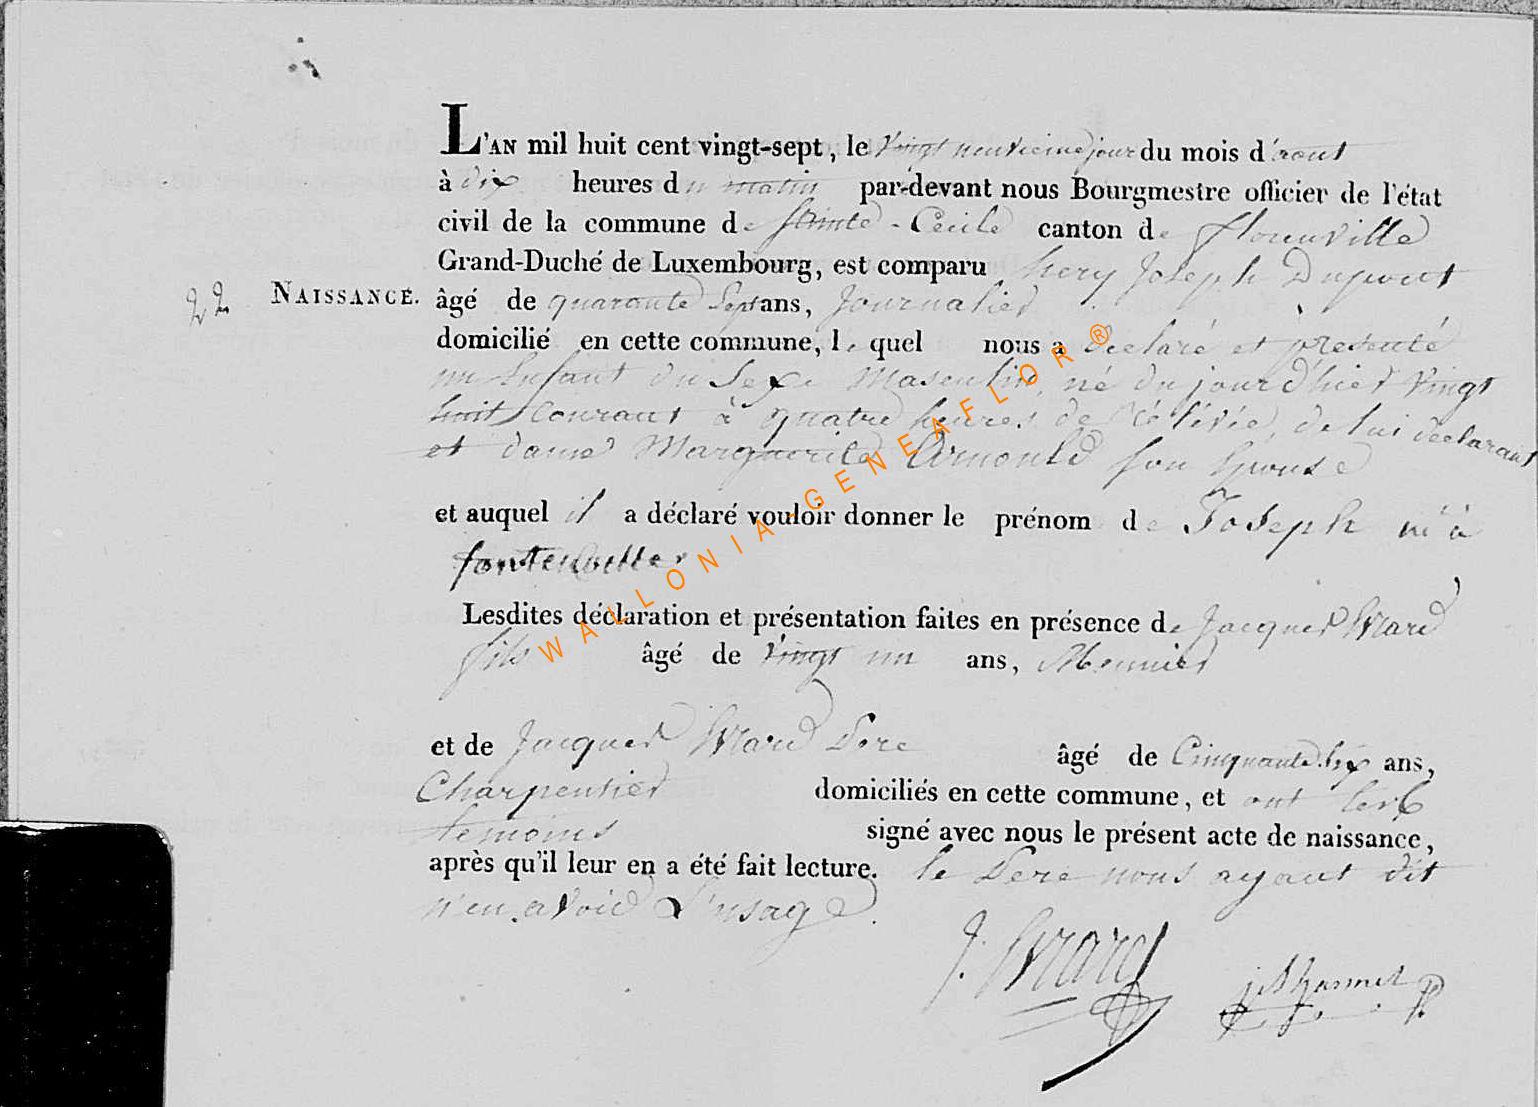 L'AN mil huit cent vingt-sept, le vingt neuvieme jour du mois d'aout
à dix heures du matin par-devant nous Bourgmestre officier de l'état
civil de la commune de Sainte-Cecile canton de florenville
Grand-Duché de Luxembourg, est comparu hery Joseph Dupont
22 NAISSANCE. âgé de quarante Sept ans, Journalier
domicilié en cette commune, le quel nous a declaré et présenté
un Enfant du Sexe Masculin, né du jour d'hier vingt
huit Courant à quatre heures de rélévée, de lui declarant
et dame Marguerite Arnould son Epouse
et auquel il a déclaré vouloir donner le prénom de Joseph né à
fontenoille
Lesdites déclaration et présentation faites en présence de Jacques Evrard
fils âgé de vingt un ans, Meunier
et de Jacques Evrard Pere âgé de Cinquante six ans,
Charpentier domiciliés en cette commune, et ont les
temoins signé avec nous le présent acte de naissance,
après qu'il leur en a été fait lecture. le Pere nous ayant dit
n'en avoir L'usage.
J. Evrard
WALLONIA-GENEAFLOR®